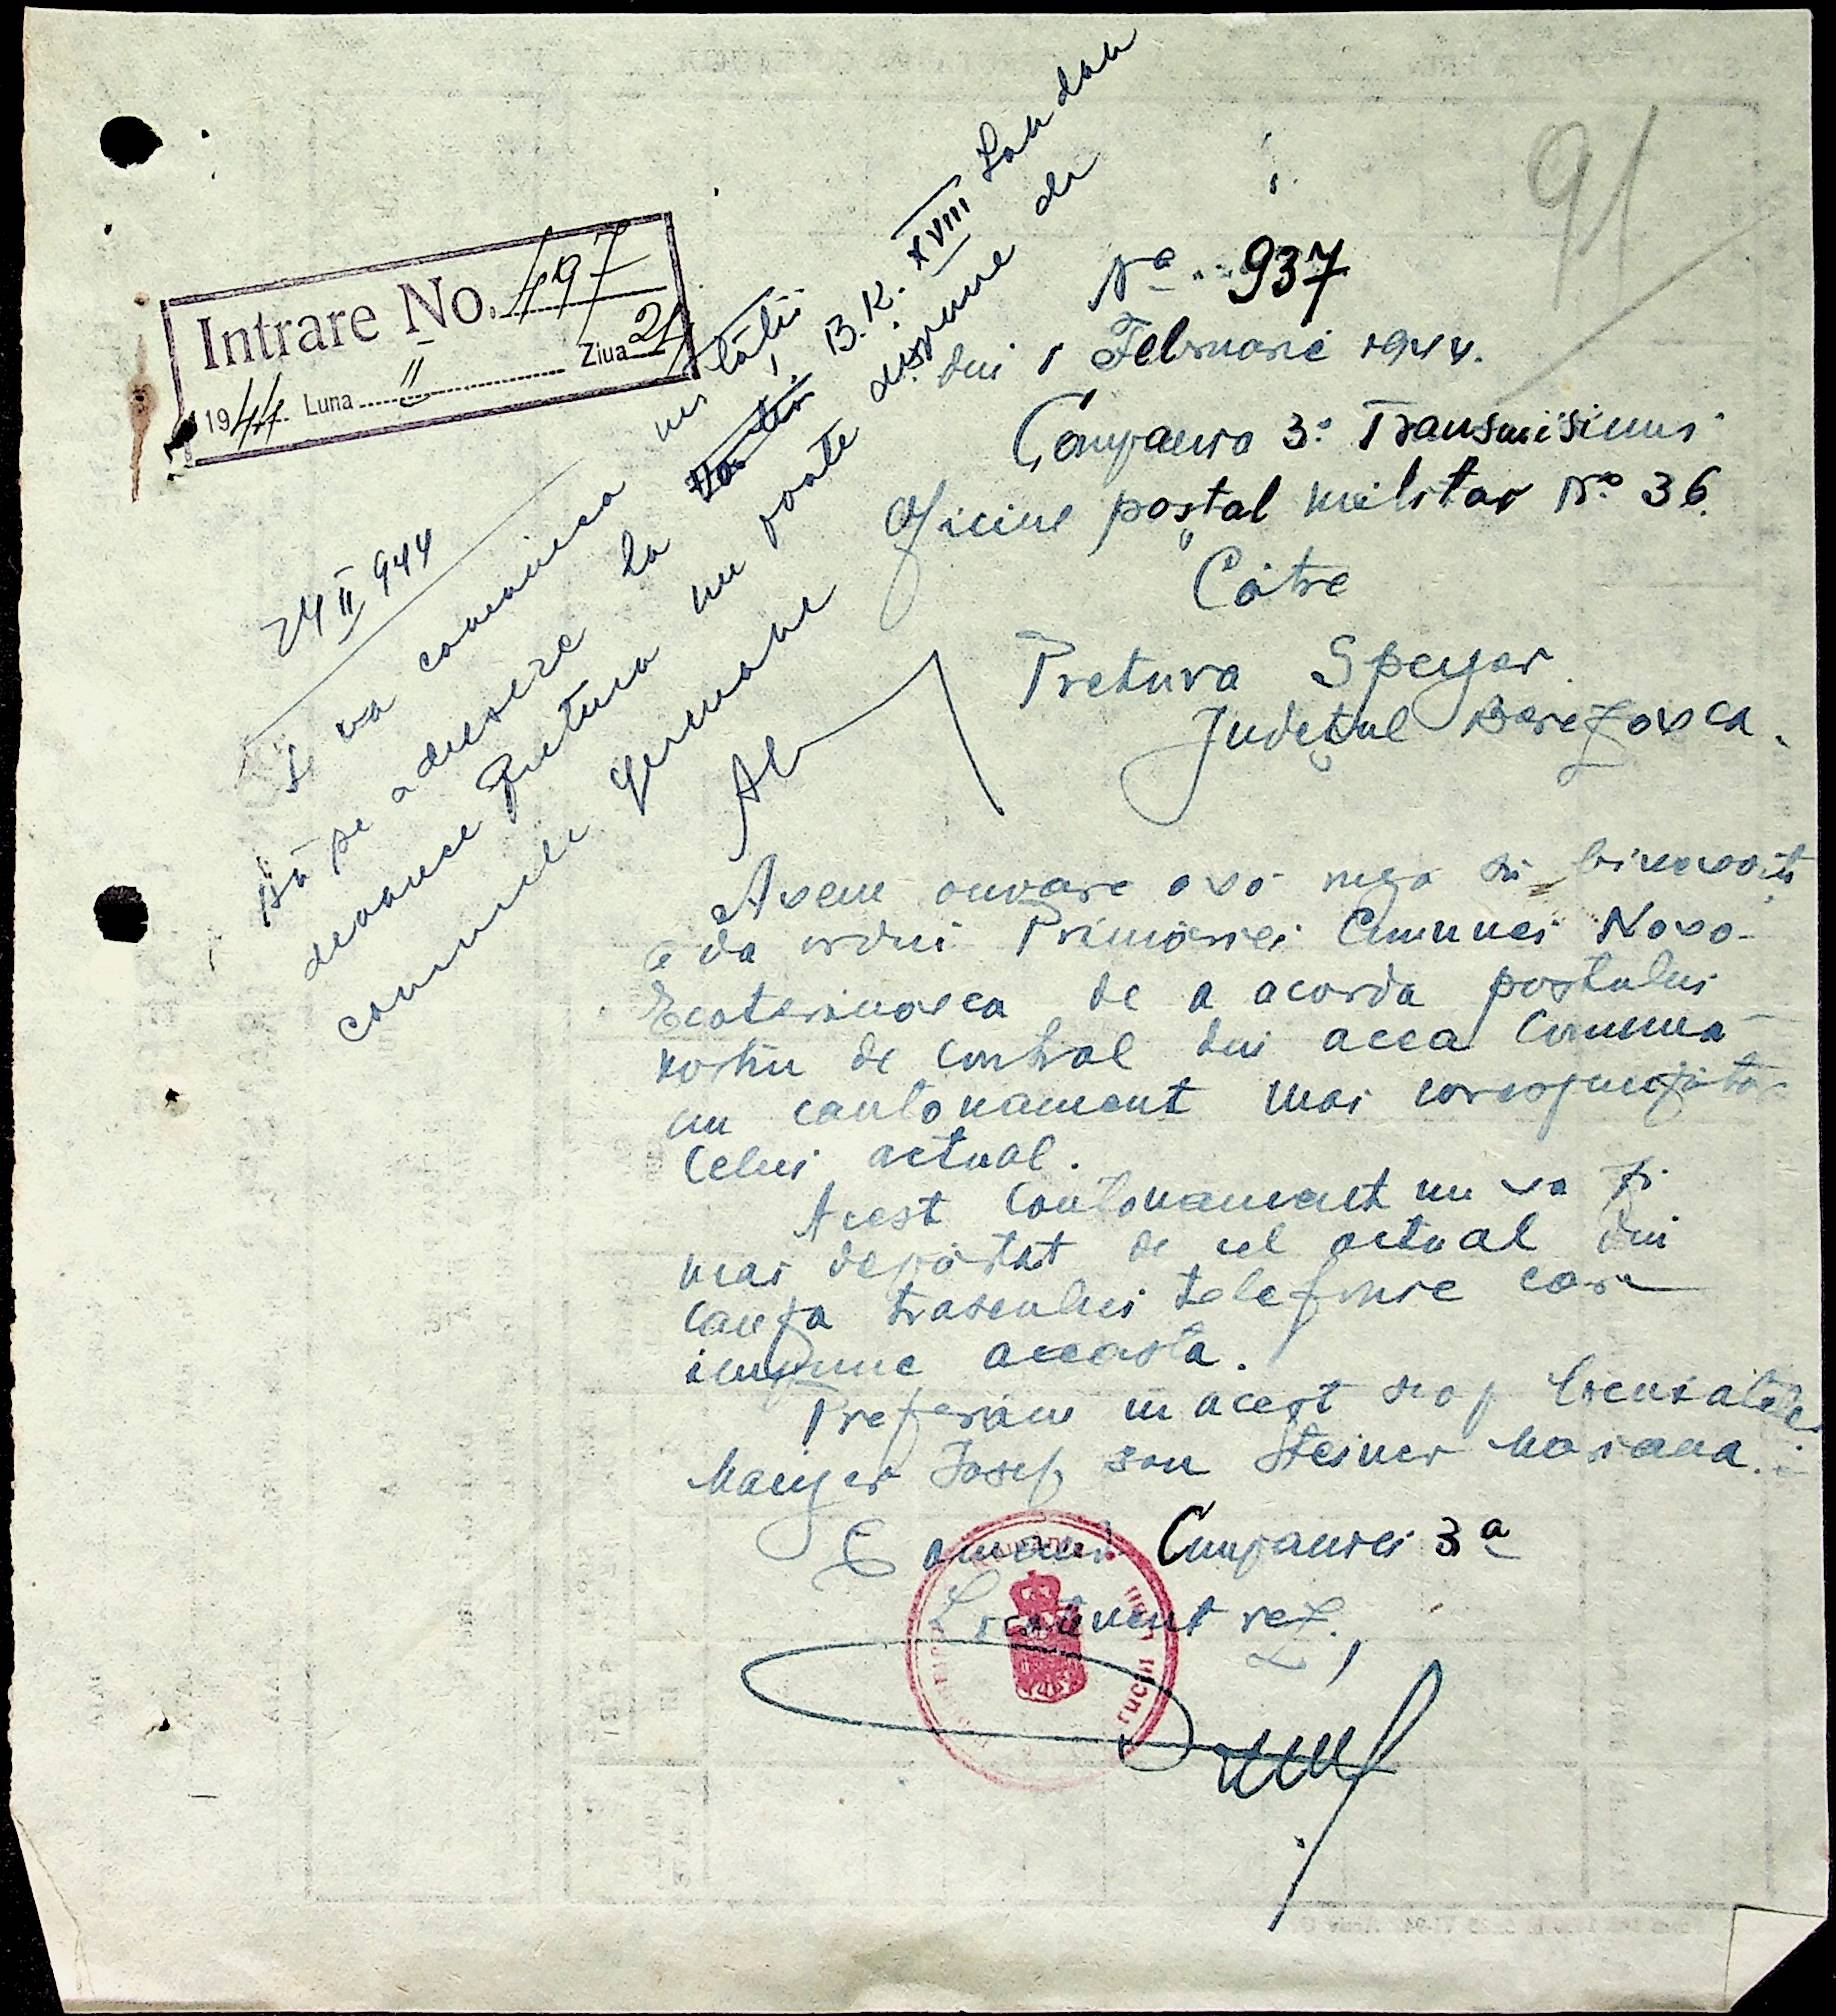 91
Intrare No. 497
1944 Luna II Ziua 24
24 II 944
Se va comunica unității
să se adreseze la B.K. XVIII Landau
deoarece Pretura nu poate dispune de
comunele germane
No 937
din 1 Februarie 1944.
Compania 3a Transmisiuni
Oficiul poștal militar No 36.
Către
Pretura Speyer
Județul Berezovca.
Avem onoare a vă ruga să binevoiți
a da ordin Primăriei Comunei Novo-
Ecaterinovca de a acorda postului
nostru de control din acea comună
un cantonament mai corespunzător
celui actual.
Acest cantonament nu va fi
mai depărtat de cel actual din
cauza traseului telefonic care
impune aceasta.
Preferăm în acest scop
Iosif sau Steiner Mariana.
Comand. Companiei 3a
Locotenent rez.,